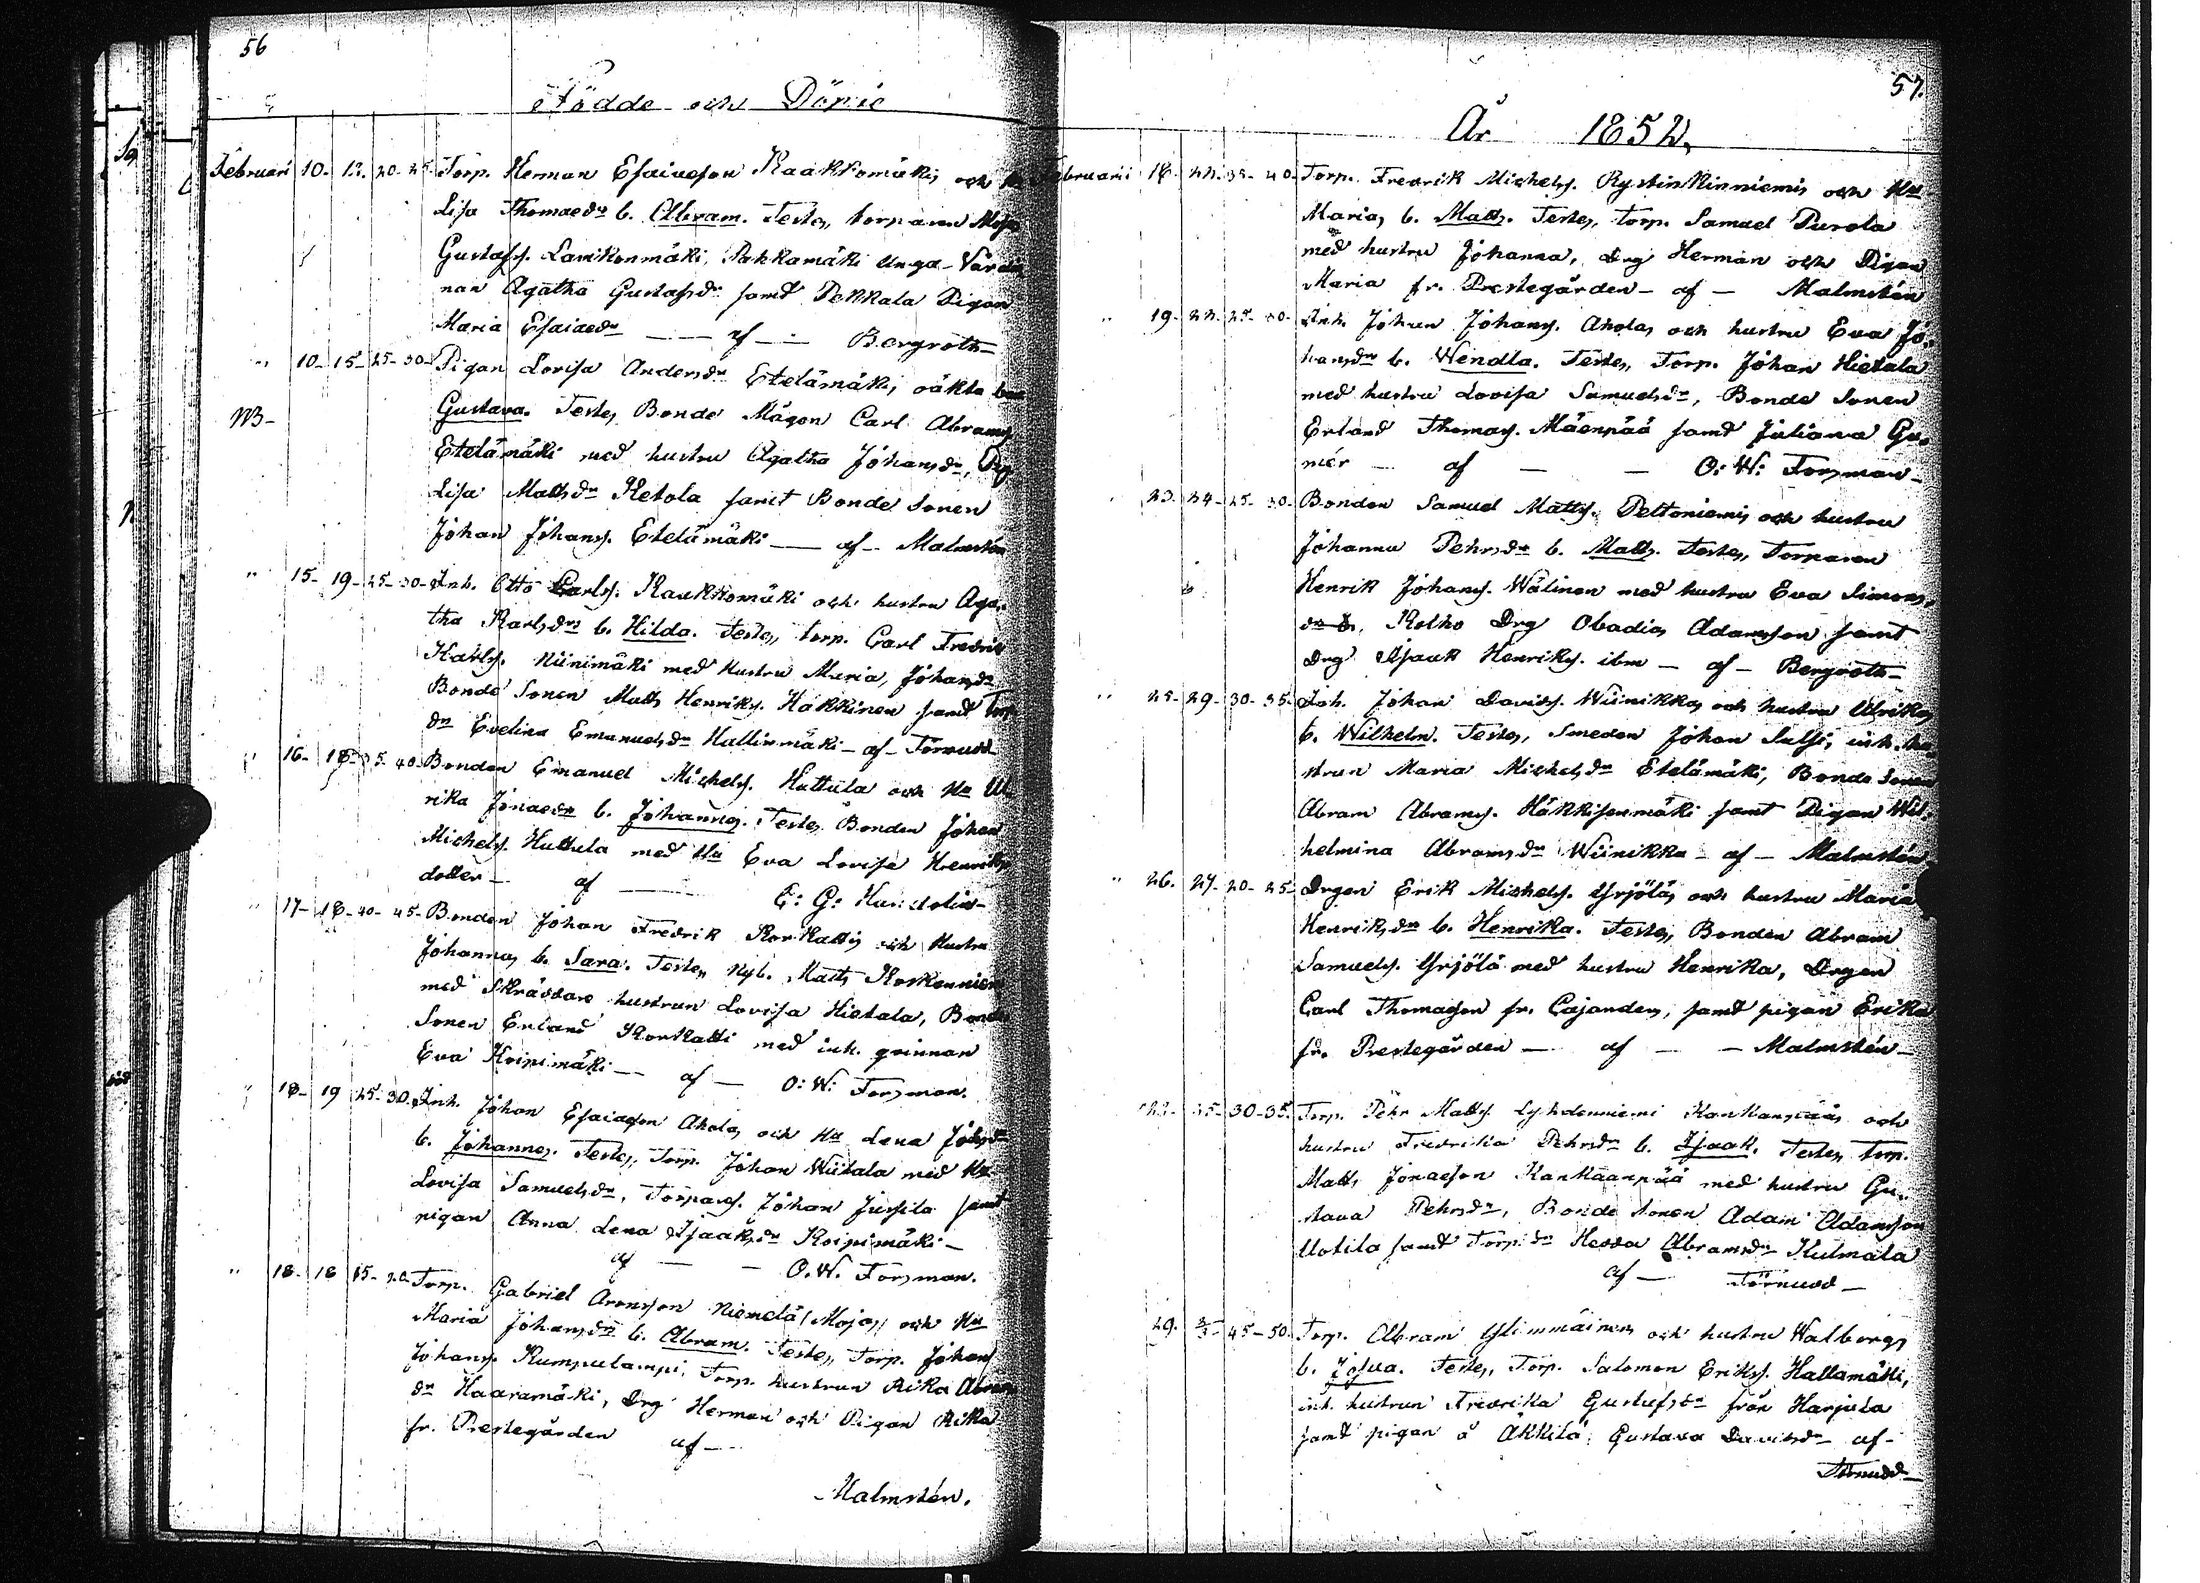 56
Födde och Döpte
Februari 10. 12. 20-25. Torp. Herman Esaiaeson Kaakkomäki, och
Lisa Thomaedr b. Abram. Testes, torparen
Gustafs. Lamikonmäki, Pakkamäki unga Värdin
nan Agatha Gustafsdr samt Pekkala Pigan
Maria Esaiaedr — af — Bergroth
" 10-15-25-30- Pigan Lovisa Andersdr Etelämäki, oäkta
NB- Gustava. Testes, Bonde Mågen Carl Abrams.
Etelämäki med hustru Agatha Johansdr,
Lisa Mattsdr Ketola samt Bonde Sonen
Johan Johans. Etelämäki — af — Malmstén
" 15-19-25-30- Inh. Otto Carls. Kaukkomäki och hustru Aga
tha Karlsdr b. Hilda. Testes, torp. Carl Fredrik
Karls. Niinimäki med hustru Maria, Johansdr
Bonde Sonen Matts Henriks. Häkkinen samt Torp
dr Evelina Emanuelsdr Hallinmäki — af — Törnudd
" 16- 18-35-40- Bonden Emanuel Michels. Huttula och Hu Ul
rika Jonaedr b. Johannes. Testes, Bonden Johan
Michels. Huttula med Hu Eva Lovisa Henriks
dotter — af — E: G:
" 17-18-40-45- Bonden Johan Fredrik Korkatti, och Hustru
Johanna, b. Sara. Testes, Nyb. Matts Koskenniemi
med Skräddare hustrun Lovisa Hietala, Bonde
Sonen Erland Korkatti med inh. qvinnan
Eva Koipimäki — af — O: W: Forsman.
" 18-19 25-30. Inh. Johan Esaiaeson Ahola, och Hu Lena Johsdr
b. Johannes. Testes, Torp. Johan Wiitala med Hu
Lovisa Samuelsdr, Torpares. Johan Jussila samt
pigan Anna Lena Isaaksdr Koipimäki —
af — O. W. Forsman.
" 18- 18 15-20 Torp. Gabriel Aronsson Niemelä (Moja,) och Hu
Maria Johansdr b. Abram. Testes, Torp. Johan
Johans. Kumpulampi, Torp. hustrun Rika Abrams
dr Haaramäki, Drg Herman och Pigan Rika
fr. Prestegården af —
Malmstén.
57.
År 1852,
Februarii 18. 22. 35-40- Torp. Fredrik Michels. Rystinkinniemi, och Hu
Maria, b. Matts. Testes, torp. Samuel Purola
med hustru Johanna, Drg Herman och Pigan
Maria fr. Prestegården — af — Malmstén
" 19- 22. 25-30- Inh. Johan Johans. Ahola, och hustru Eva Jo
hansdr b. Wendla. Testes, Torp. Johan Hietala
med hustru Lovisa Samuelsdr, Bonde Sonen
Erland Thomas. Mäenpää samt Juliana
mér — af — O: W: Forsman —
23. 24-25-30- Bonden Samuel Matts. Peltoniemi, och hustru
Johanna Pehrsdr b. Matts. Testes, Torparen
Henrik Johans. Wälinen med hustru Eva Simons
dr, Kotko Drg Obadias Adamsson samt
Drg Isaak Henriks. ibm — af — Bergroth —
" 25-29-30-35. Inh. Johan Davids. Wiinikka, och hustru Ulrika,
b. Wilhelm. Testes, Smeden Johan Sulsi, inh. hu
strun Maria Michelsdr Etelämäki, Bonde Sonen
Abram Abrams. Häkkisenmäki samt Pigan Wil
helmina Abramsdr Wiinikka — af — Malmstén
" 26. 27-20-25- Drgen Erik Michels. Yrjölä, och hustru Maria
Henriksdr b. Henrika. Testes, Bonden Abram
Samuels. Yrjölä med hustru Henrika, Drgen
Carl Thomasson fr. Cajanders, samt pigan Erika
fr. Prestegården — af — Malmstén —
30-35. Torp. Pehr Matts. Lyhdenniemi Kankaanpää, och
hustru Fredrika Pehrsdr b. Isaak. Testes, torp.
Matts Jonaeson Kankaanpää med hustru Gu
stava Pehrsdr, Bonde Sonen Adam Adamsson
Uotila samt Torp. dr Hedda Abramsdr Kulmala
af — Törnudd —
29. 2/3 45-50. Torp. Abram Ylimmäinen, och hustru Walborg,
b. Josua. Testes, Torp. Salomon Eriks. Hallamäki,
inh. hustrun Fredrika Gustafsdr från Harjula
samt pigan å Äkkilä, Gustava Davidsdr — af —
Törnudd —